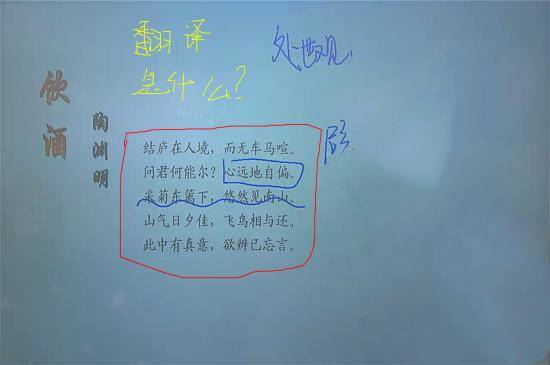 翻译
是什么?
处世观
饮酒
陶渊明
结庐在人境，而无车马喧。
问君何能尔？心远地自偏。
采菊东篱下，悠然见南山。
山气日夕佳，飞鸟相与还。
此中有真意，欲辨已忘言。